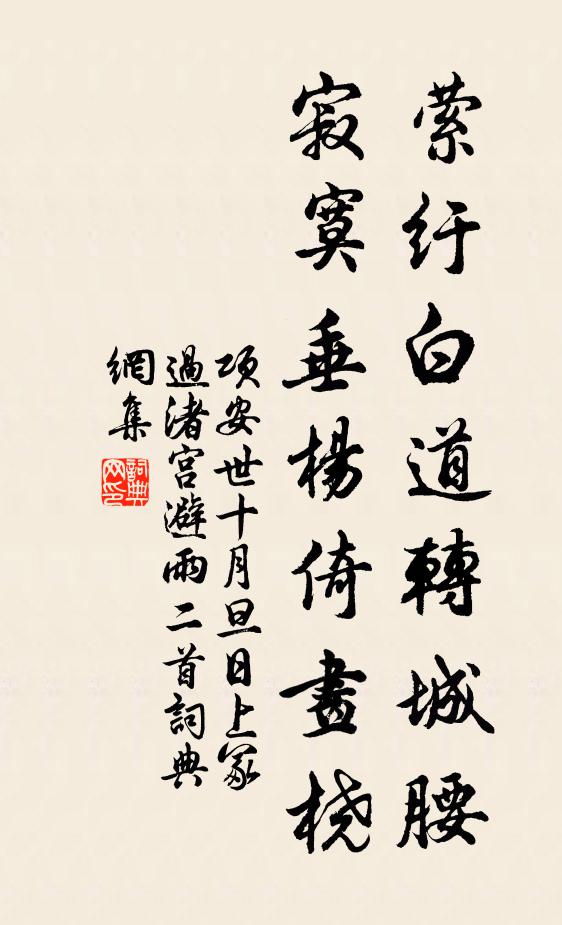 萦紆白道轉城腰
寂寞垂楊倚畫橈
項安世十月旦日上冢
過渚宮避雨二首詞典
網集
詞典網印